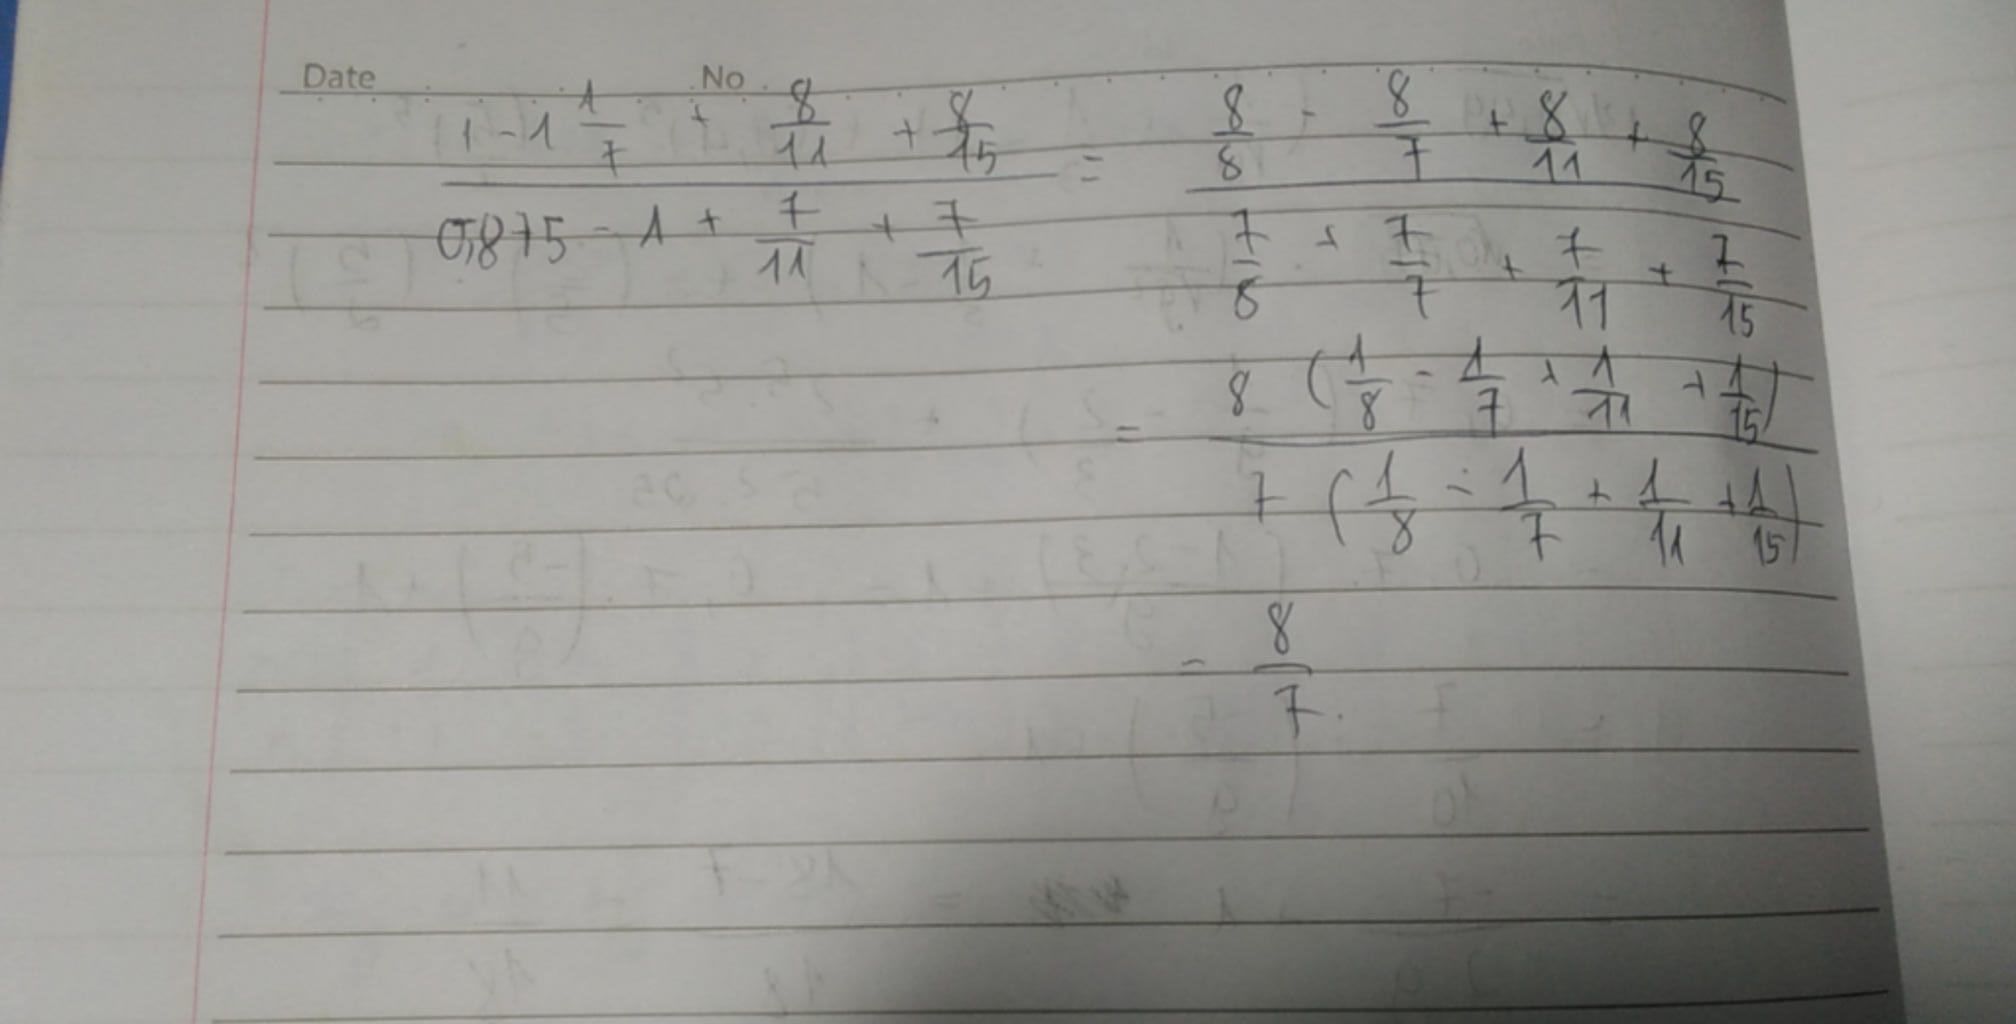 Date No
1 - 1 1/7 + 8/11 + 8/15 = 8/8 - 8/7 + 8/11 + 8/15
0,875 - 1 + 7/11 + 7/15 7/8 + 7/7 + 7/11 + 7/15
= 8 (1/8 - 1/7 + 1/11 + 1/15)
7 (1/8 - 1/7 + 1/11 + 1/15)
= 8/7.